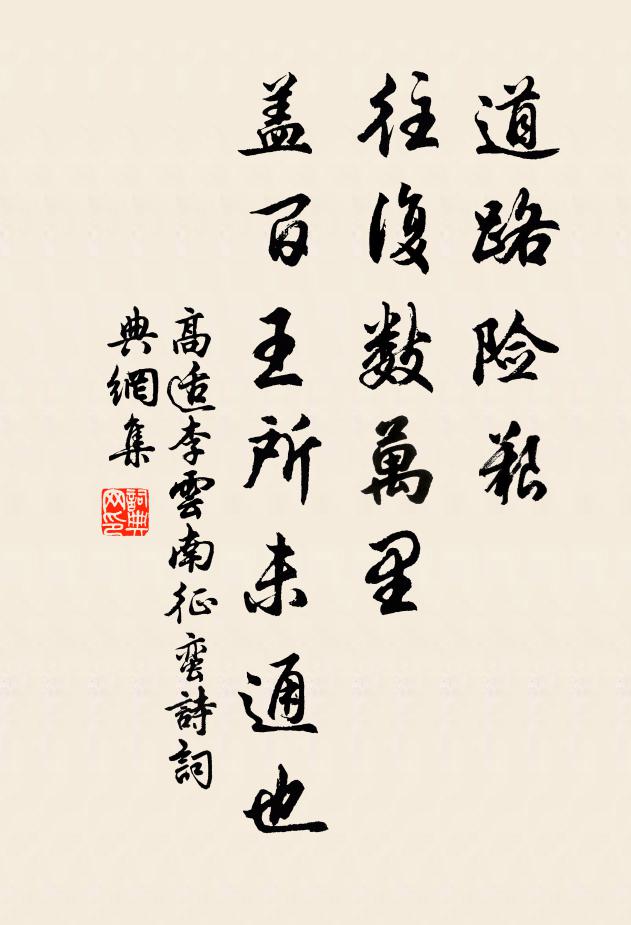 道路险艰
往復数萬里
盖百王所未通也
高适李雲南征蛮詩詞
典網集
詞典
网印